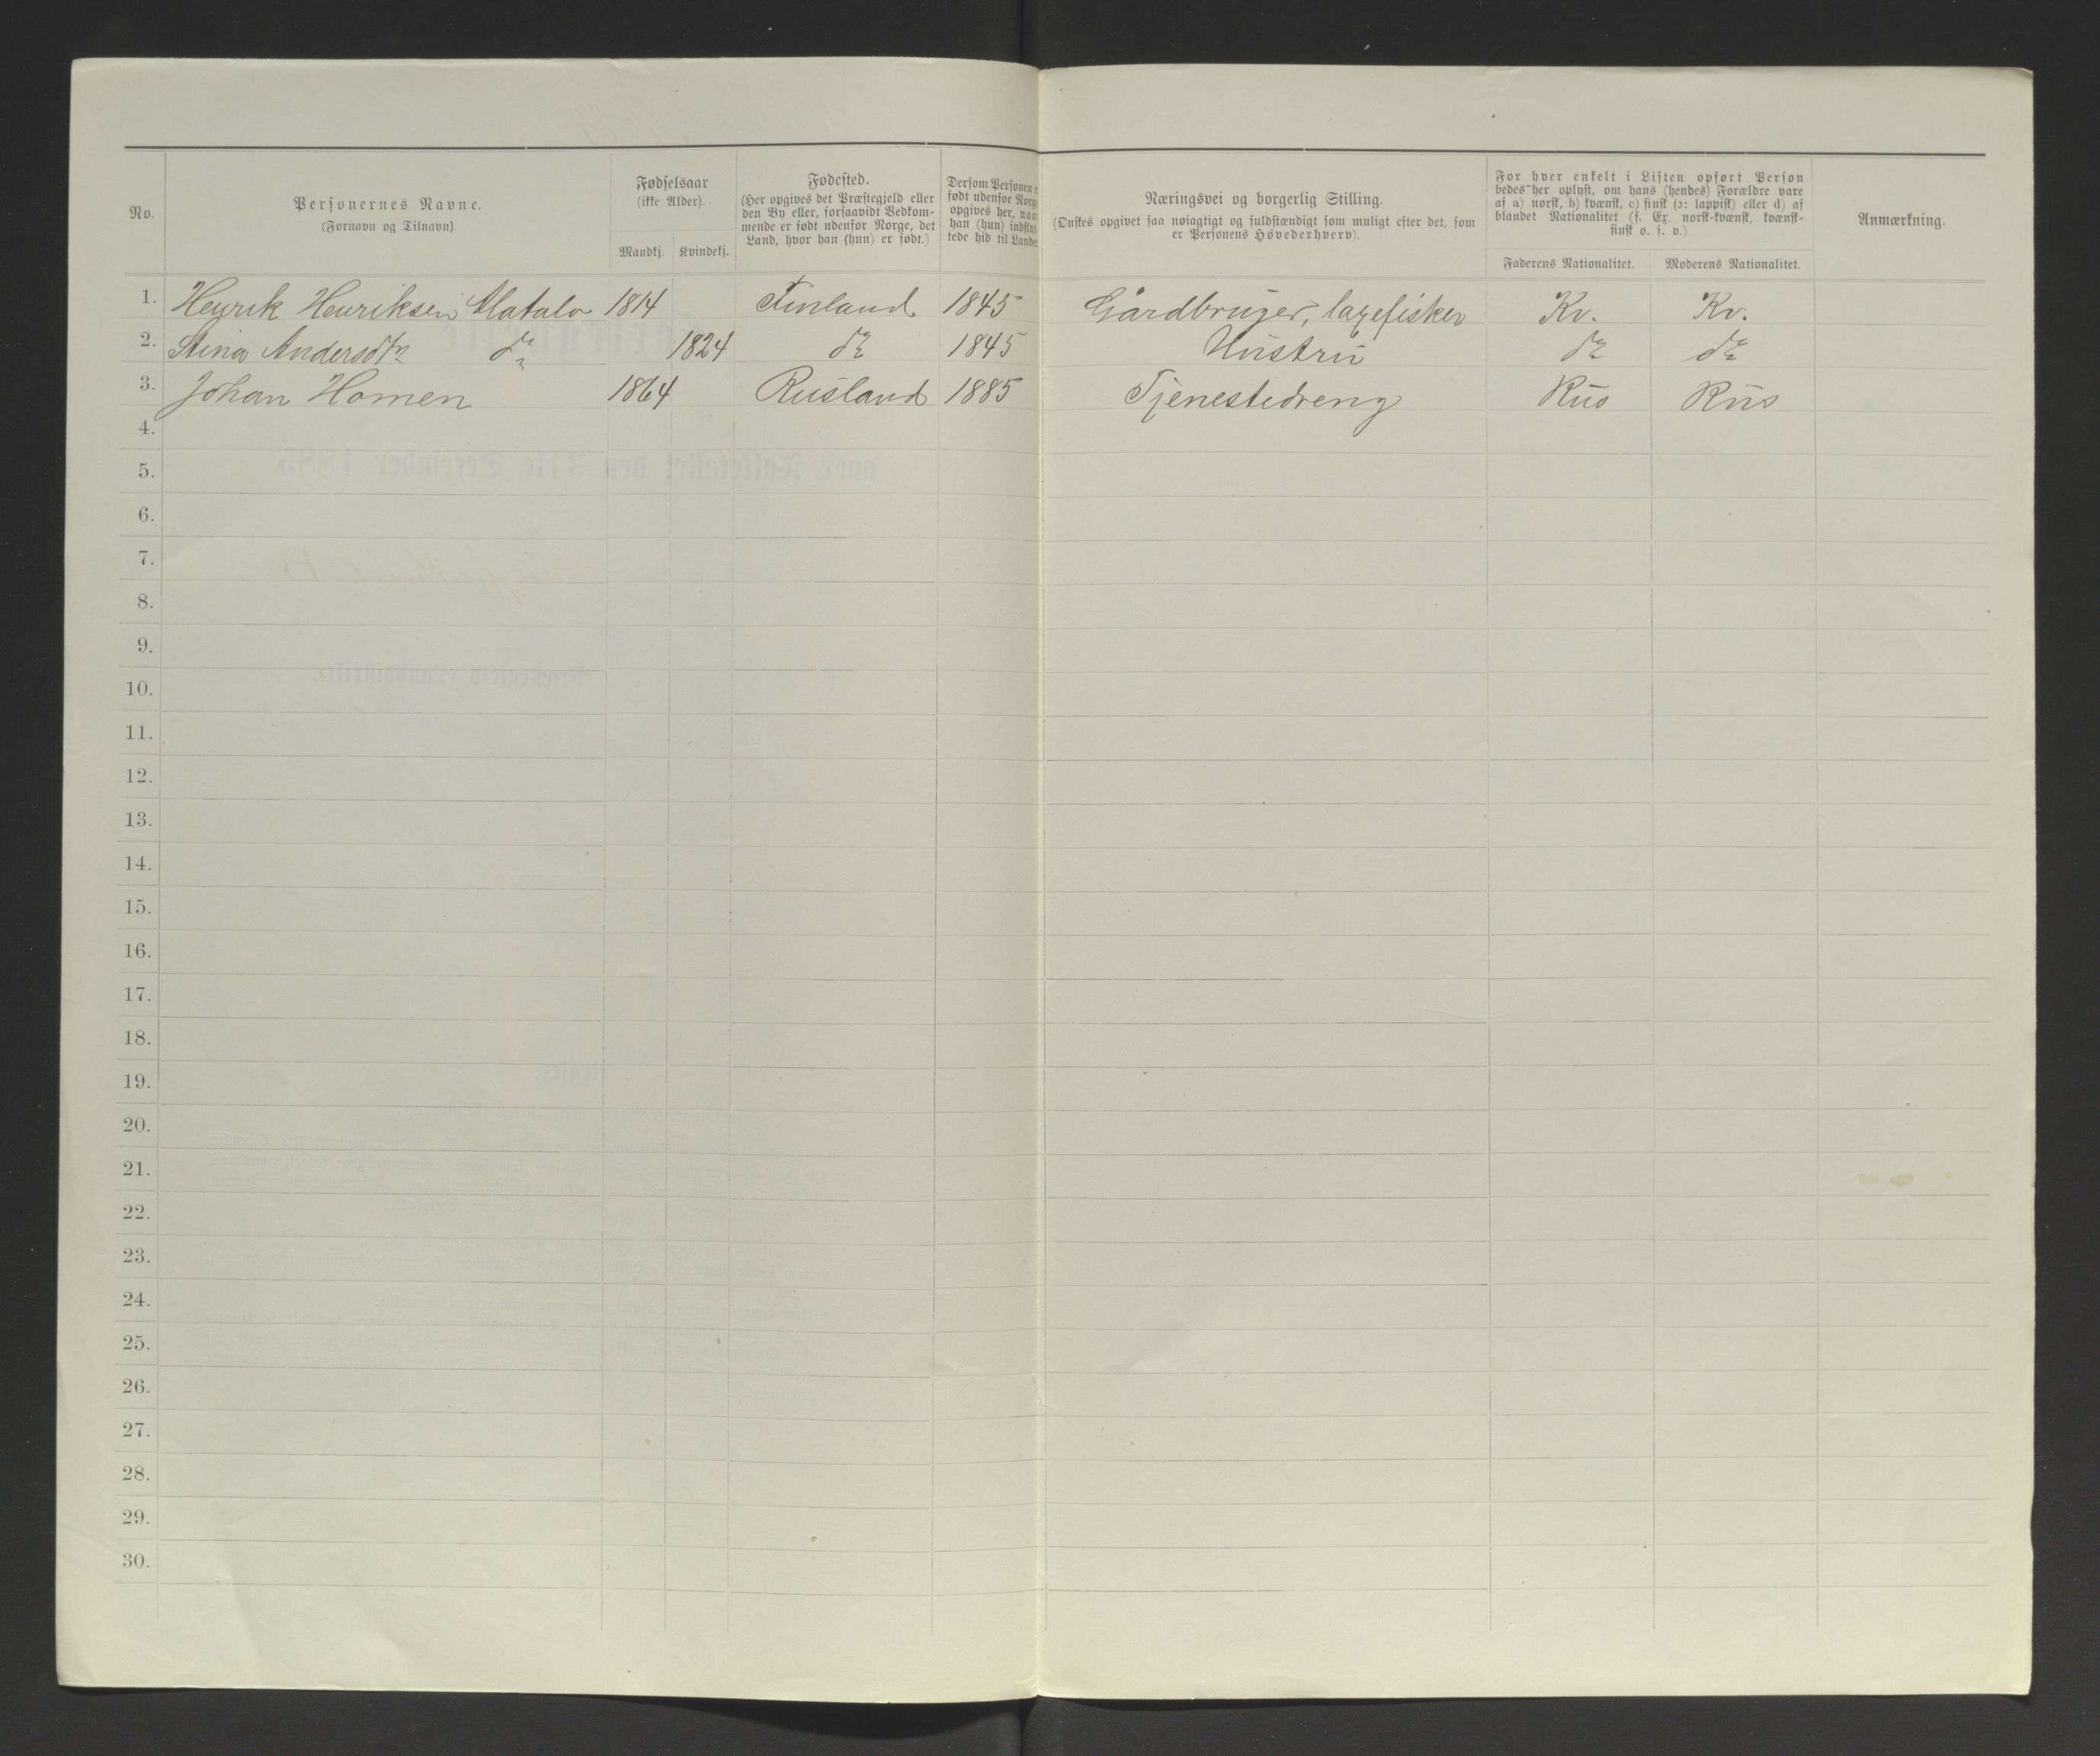 No.
Personernes Navne.
(Fornavn og Tilnavn)
Fødselsaar
(ikke Alder).
Mandkj. Kvindekj.
Fødested.
(Her opgives det Præstegjeld eller
den By eller, forsaavidt Vedkom-
mende er født udenfor Norge, det
Land, hvor han (hun) er født.)
Dersom Personen e
født udenfor Norge
opgives her, naa
han (hun) indfly
tede hid til Landet
Næringsvei og borgerlig Stilling.
(Ønskes opgivet saa nøiagtigt og fuldstændigt som muligt efter det, som
er Personens Hovederhverv).
For hver enkelt i Listen opført Person
bedes her oplyst, om hans (hendes) Forældre vare
af a) norsk, b) kvænsk, c) finsk (ɔ: lappisk) eller d) af
blandet Nationalitet (f. Ex. norsk-kvænsk, kvænsk-
finsk o. s. v.)
Faderens Nationalitet. Moderens Nationalitet.
Anmærkning.
1. Henrik Henriksen Alatalo 1814 Finland 1845 Gårdbruger, laxefisker Kv. Kv.
2. Stina Andersdtr do 1824 do 1845 Hustru do do
3. Johan Homen 1864 Rusland 1885 Tjenestedreng Rus Rus
4.
5.
6.
7.
8.
9.
10.
11.
12.
13.
14.
15.
16.
17.
18.
19.
20.
21.
22.
23.
24.
25.
26.
27.
28.
29.
30.